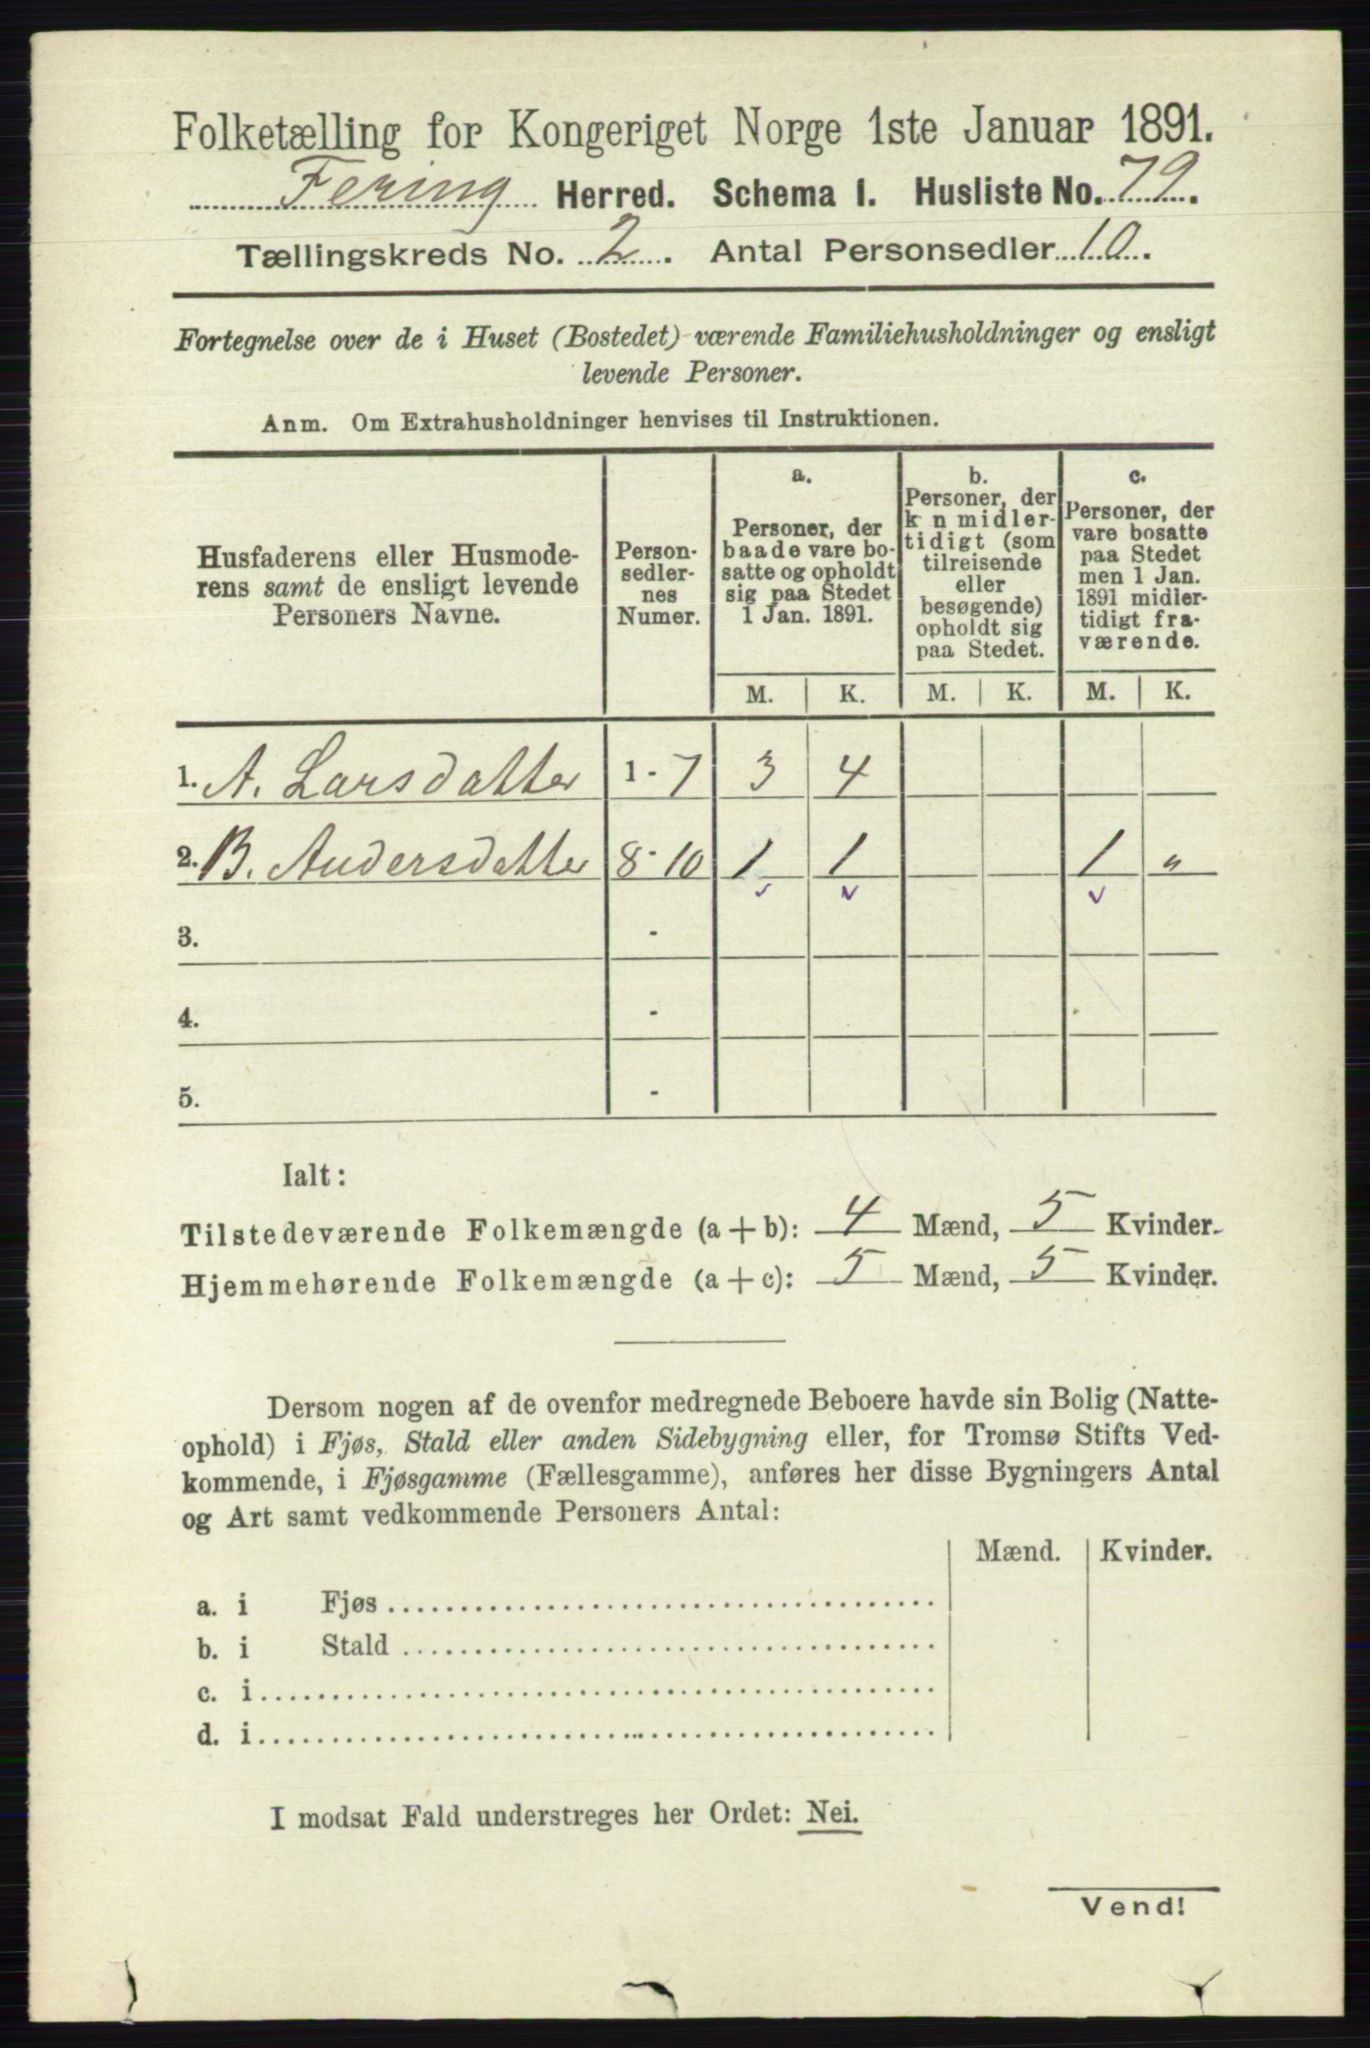 Folketælling for Kongeriget Norge 1ste Januar 1891.
Fering Herred. Schema 1. Husliste No. 79.
Tællingskreds No. 2. Antal Personsedler 10.
Fortegnelse over de i Huset (Bostedet) værende Familiehusholdninger og ensligt
levende Personer.
Anm. Om Extrahusholdninger henvises til Instruktionen.
Husfaderens eller Husmode-
rens samt de ensligt levende
Personers Navne.
Person-
sedler-
nes
Numer.
a.
Personer, der
baade vare bo-
satte og opholdt
sig paa Stedet
1 Jan. 1891.
b.
Personer, der
k n midler-
tidigt (som
tilreisende
eller
besøgende)
opholdt sig
paa Stedet.
c.
Personer, der
vare bosatte
paa Stedet
men 1 Jan.
1891 midler-
tidigt fra-
værende.
M. K. M. K. M. K.
1. A. Larsdatter 1-7 3 4
2. B. Andersdatter 8-10 1 1 1 "
3. -
4. -
5. -
Ialt:
Tilstedeværende Folkemængde (a+b): 4 Mænd, 5 Kvinder.
Hjemmehørende Folkemængde (a+c): 5 Mænd, 5 Kvinder.
Dersom nogen af de ovenfor medregnede Beboere havde sin Bolig (Natte-
ophold) i Fjøs, Stald eller anden Sidebygning eller, for Tromsø Stifts Ved-
kommende, i Fjøsgamme (Fællesgamme), anføres her disse Bygningers Antal
og Art samt vedkommende Personers Antal:
Mænd. Kvinder.
a. i Fjøs
b. i Stald
c. i
d. i
I modsat Fald understreges her Ordet: Nei.
Vend!